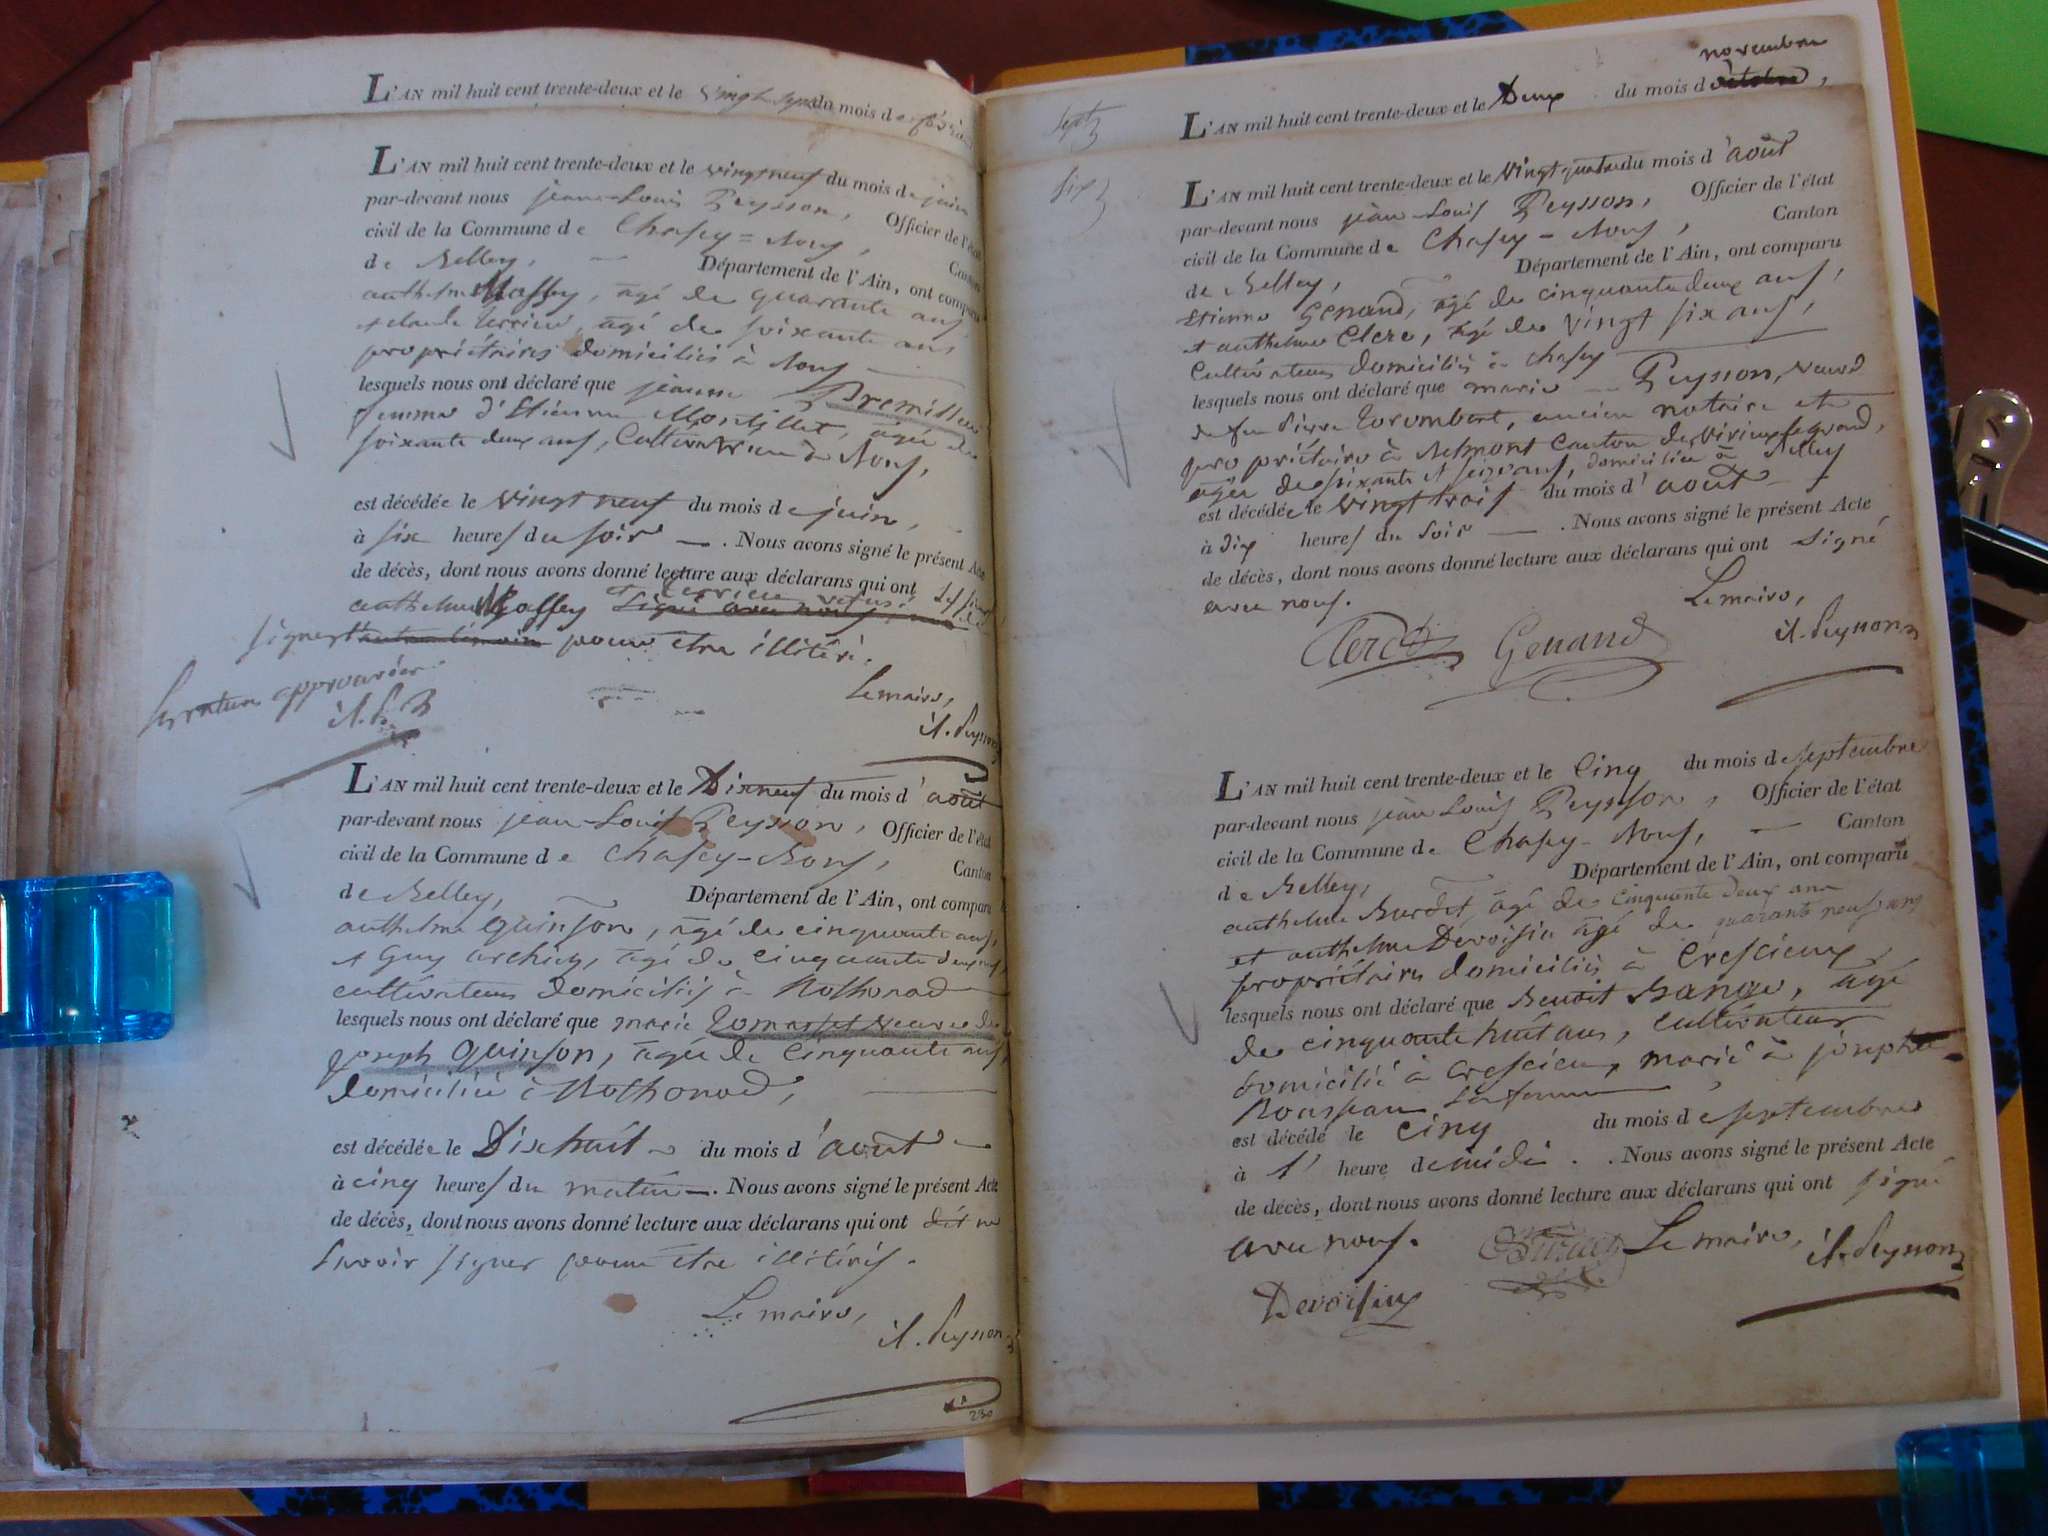 L'AN mil huit cent trente-deux et le vingt sept du mois de
L'AN mil huit cent trente-deux et le vingt neuf du mois de juin
par-devant nous jean-Louis Peysson, Officier de l'état
civil de la Commune de Chasey = Bons, Canton
de Belley, Département de l'Ain, ont comparu
anthelme, âgé de quarante ans
et claude terrier, âgé de soixante ans
propriétaires domiciliés à Bons
lesquels nous ont déclaré que jeanne Premillieu
femme d'Etienne Montillet, âgée de
soixante deux ans, Cultivatrice à Bons,
est décédée le vingt neuf du mois de juin,
à six heures du soir. Nous avons signé le présent Acte
de décès, dont nous avons donné lecture aux déclarans qui ont
et terrier
anthelme signé avec nous
signer l'autre témoin pour être illitéré.
approuvée
Le maire,
jl. Peysson
L'AN mil huit cent trente-deux et le Dixneuf du mois d'août
par-devant nous jean-Louis Peysson, Officier de l'état
civil de la Commune de Chasey-Bons, Canton
de Belley, Département de l'Ain, ont comparu
anthelme Quinson, âgé de cinquante ans,
et Guy archiey, âgé de cinquante deux ans,
cultivateurs domiciliés à Rothonod
lesquels nous ont déclaré que marie tomasset veuve de
joseph Quinson, âgée de Cinquante ans,
domiciliée à Rothonod,
est décédée le Dixhuit du mois d'août
à cinq heures du matin. Nous avons signé le présent Acte
de décès, dont nous avons donné lecture aux déclarans qui ont dit ne
savoir signer pour être illitérés.
Le maire,
jl. Peysson
230
novembre
L'AN mil huit cent trente-deux et le Deux du mois d octobre,
L'AN mil huit cent trente-deux et le vingt quatre du mois d'août
par-devant nous jean-Louis Peysson, Officier de l'état
civil de la Commune de Chasey-Bons, Canton
de Belley, Département de l'Ain, ont comparu
Etienne Genand, âgé de cinquante deux ans,
et anthelme Clerc, âgé de vingt six ans,
Cultivateurs domiciliés à chasey
lesquels nous ont déclaré que marie Peysson, veuve
de feu Pierre torombert, ancien notaire et
propriétaire à Belmont Canton de virieux legrand,
âgée de soixante et seize ans, domiciliée à Belley
est décédée le vingt trois du mois d'août
à dix heures du soir. Nous avons signé le présent Acte
de décès, dont nous avons donné lecture aux déclarans qui ont signé
avec nous.
Le maire,
Clerc Genand jl. Peysson
L'AN mil huit cent trente-deux et le Cinq du mois de septembre
par-devant nous jean Louis Peysson, Officier de l'état
civil de la Commune de Chasey-Bons, Canton
de Belley, Département de l'Ain, ont comparu
anthelme Burdet, âgé de Cinquante deux ans
et anthelme Devoisin âgé de quarante neuf ans
propriétaires domiciliés à Crescieux,
lesquels nous ont déclaré que Benoit Bange, âgé
de cinquante huit ans, cultivateur
domicilié à Crescieu, marié à josephte
Rousseau, sa femme
est décédé le cinq du mois de septembre
à l' heure de midi. Nous avons signé le présent Acte
de décès, dont nous avons donné lecture aux déclarans qui ont signé
avec nous. Burdet Le maire, jl. Peysson
Devoisin